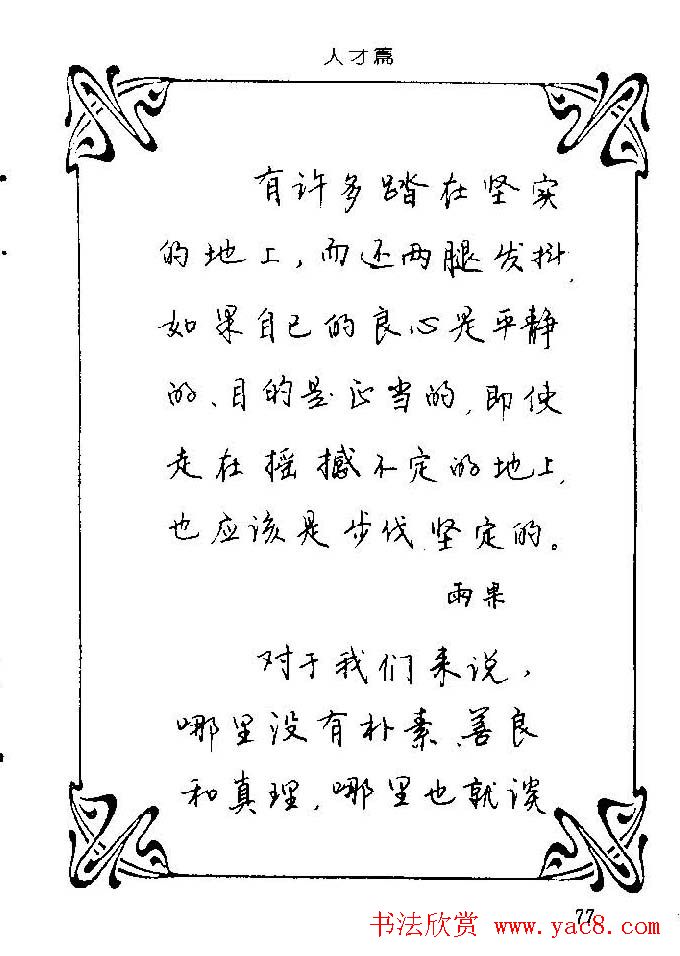 人才篇
有许多踏在坚实
的地上，而还两腿发抖，
如果自己的良心是平静
的、目的是正当的，即使
走在摇撼不定的地上，
也应该是步伐坚定的。
雨果
对于我们来说，
哪里没有朴素、善良
和真理，哪里也就谈
77
书法欣赏 www.yac8.com